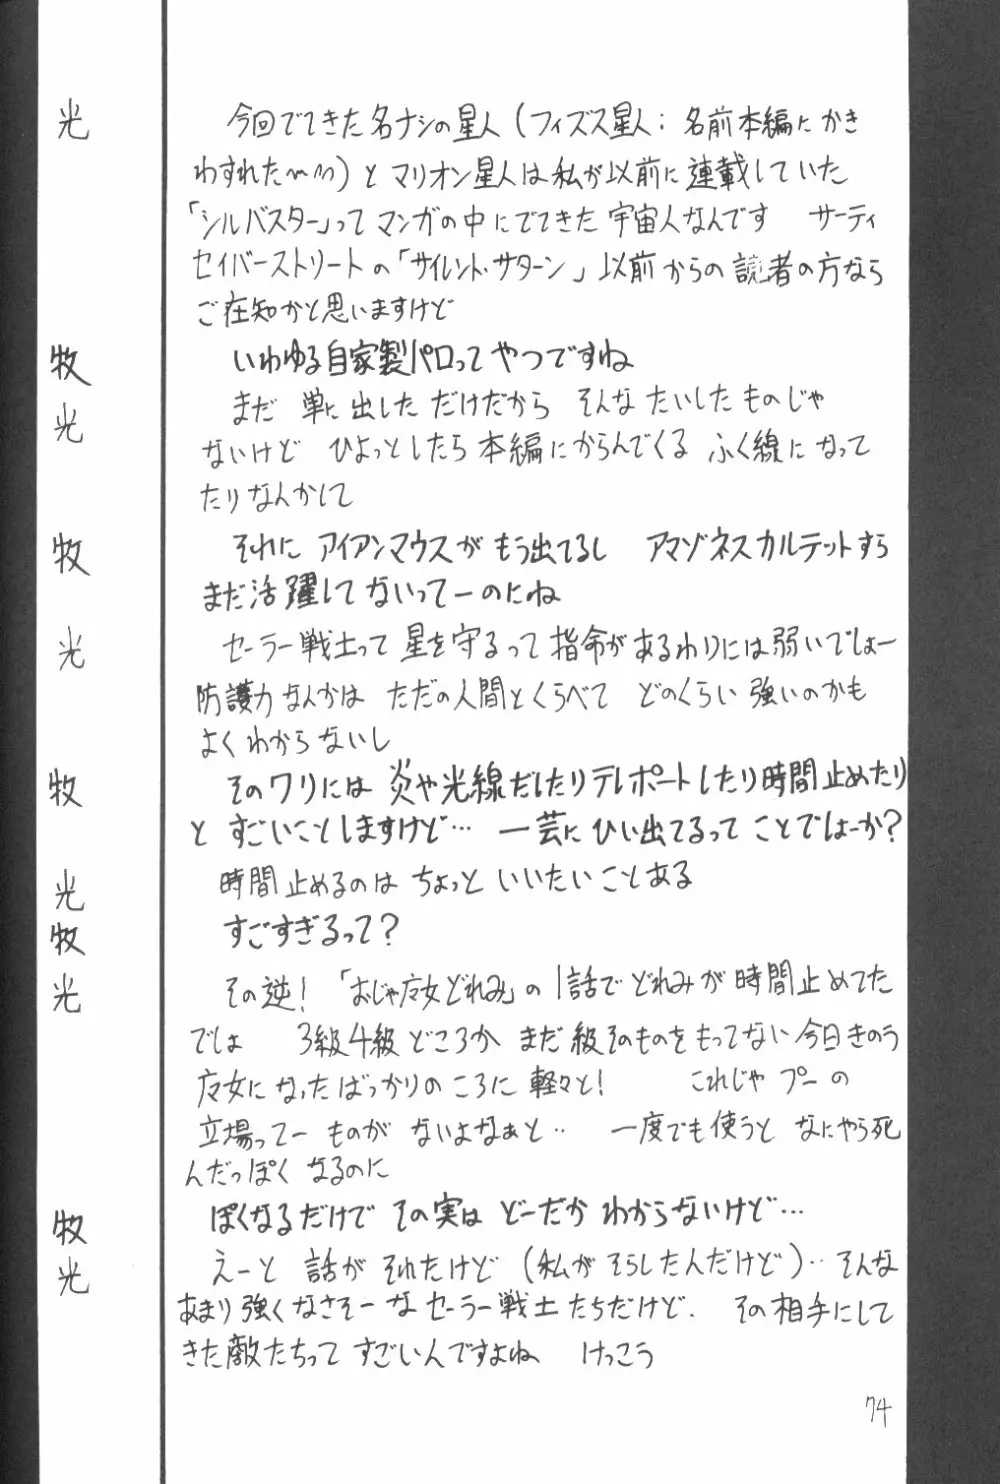 光 今回でてきた名ナシの星人(フィズス星人:名前本編にかき
わすれた〜)とマリオン星人は私が以前に連載していた
「シルバスター」ってマンガの中にでてきた宇宙人なんです サーティ
セイバーストリートの「サイレント・サターン」以前からの読者の方なら
ご在知かと思いますけど
牧 いわゆる自家製パロってやつですね
光 まだ 単に出しただけだから そんなたいしたものじゃ
ないけど ひょっとしたら本編にからんでくる ふく線になって
たりなんかして
牧 それに アイアンマウスがもう出てるし アマゾネスカルテットすら
まだ活躍してないってーのにね
光 セーラー戦士って星を守るって指命があるわりには弱いでしょー
防護力なんかは ただの人間とくらべて どのくらい強いのかも
よくわからないし
牧 そのワリには炎や光線だしたりテレポートしたり時間止めたり
と すごいことしますけど… 一芸にひい出てるってことでしょーか?
光 時間止めるのは ちょっと いいたいことある
牧 すごすぎるって?
光 その逆!「おじゃ魔女どれみ」の1話でどれみが時間止めてた
でしょ 3級4級どころか まだ級そのものをもってない今日きのう
魔女になったばっかりのころに軽々と! これじゃ プーの
立場ってー ものが ないよなぁと‥ 一度でも使うと なにやら死
んだっぽくなるのに
牧 ぽくなるだけで その実は どーだか わからないけど…
光 えーと 話がそれたけど(私がそらしたんだけど)‥そんな
あまり強くなさそーなセーラー戦士たちだけど. その相手にして
きた敵たちって すごいんですよね けっこう
74